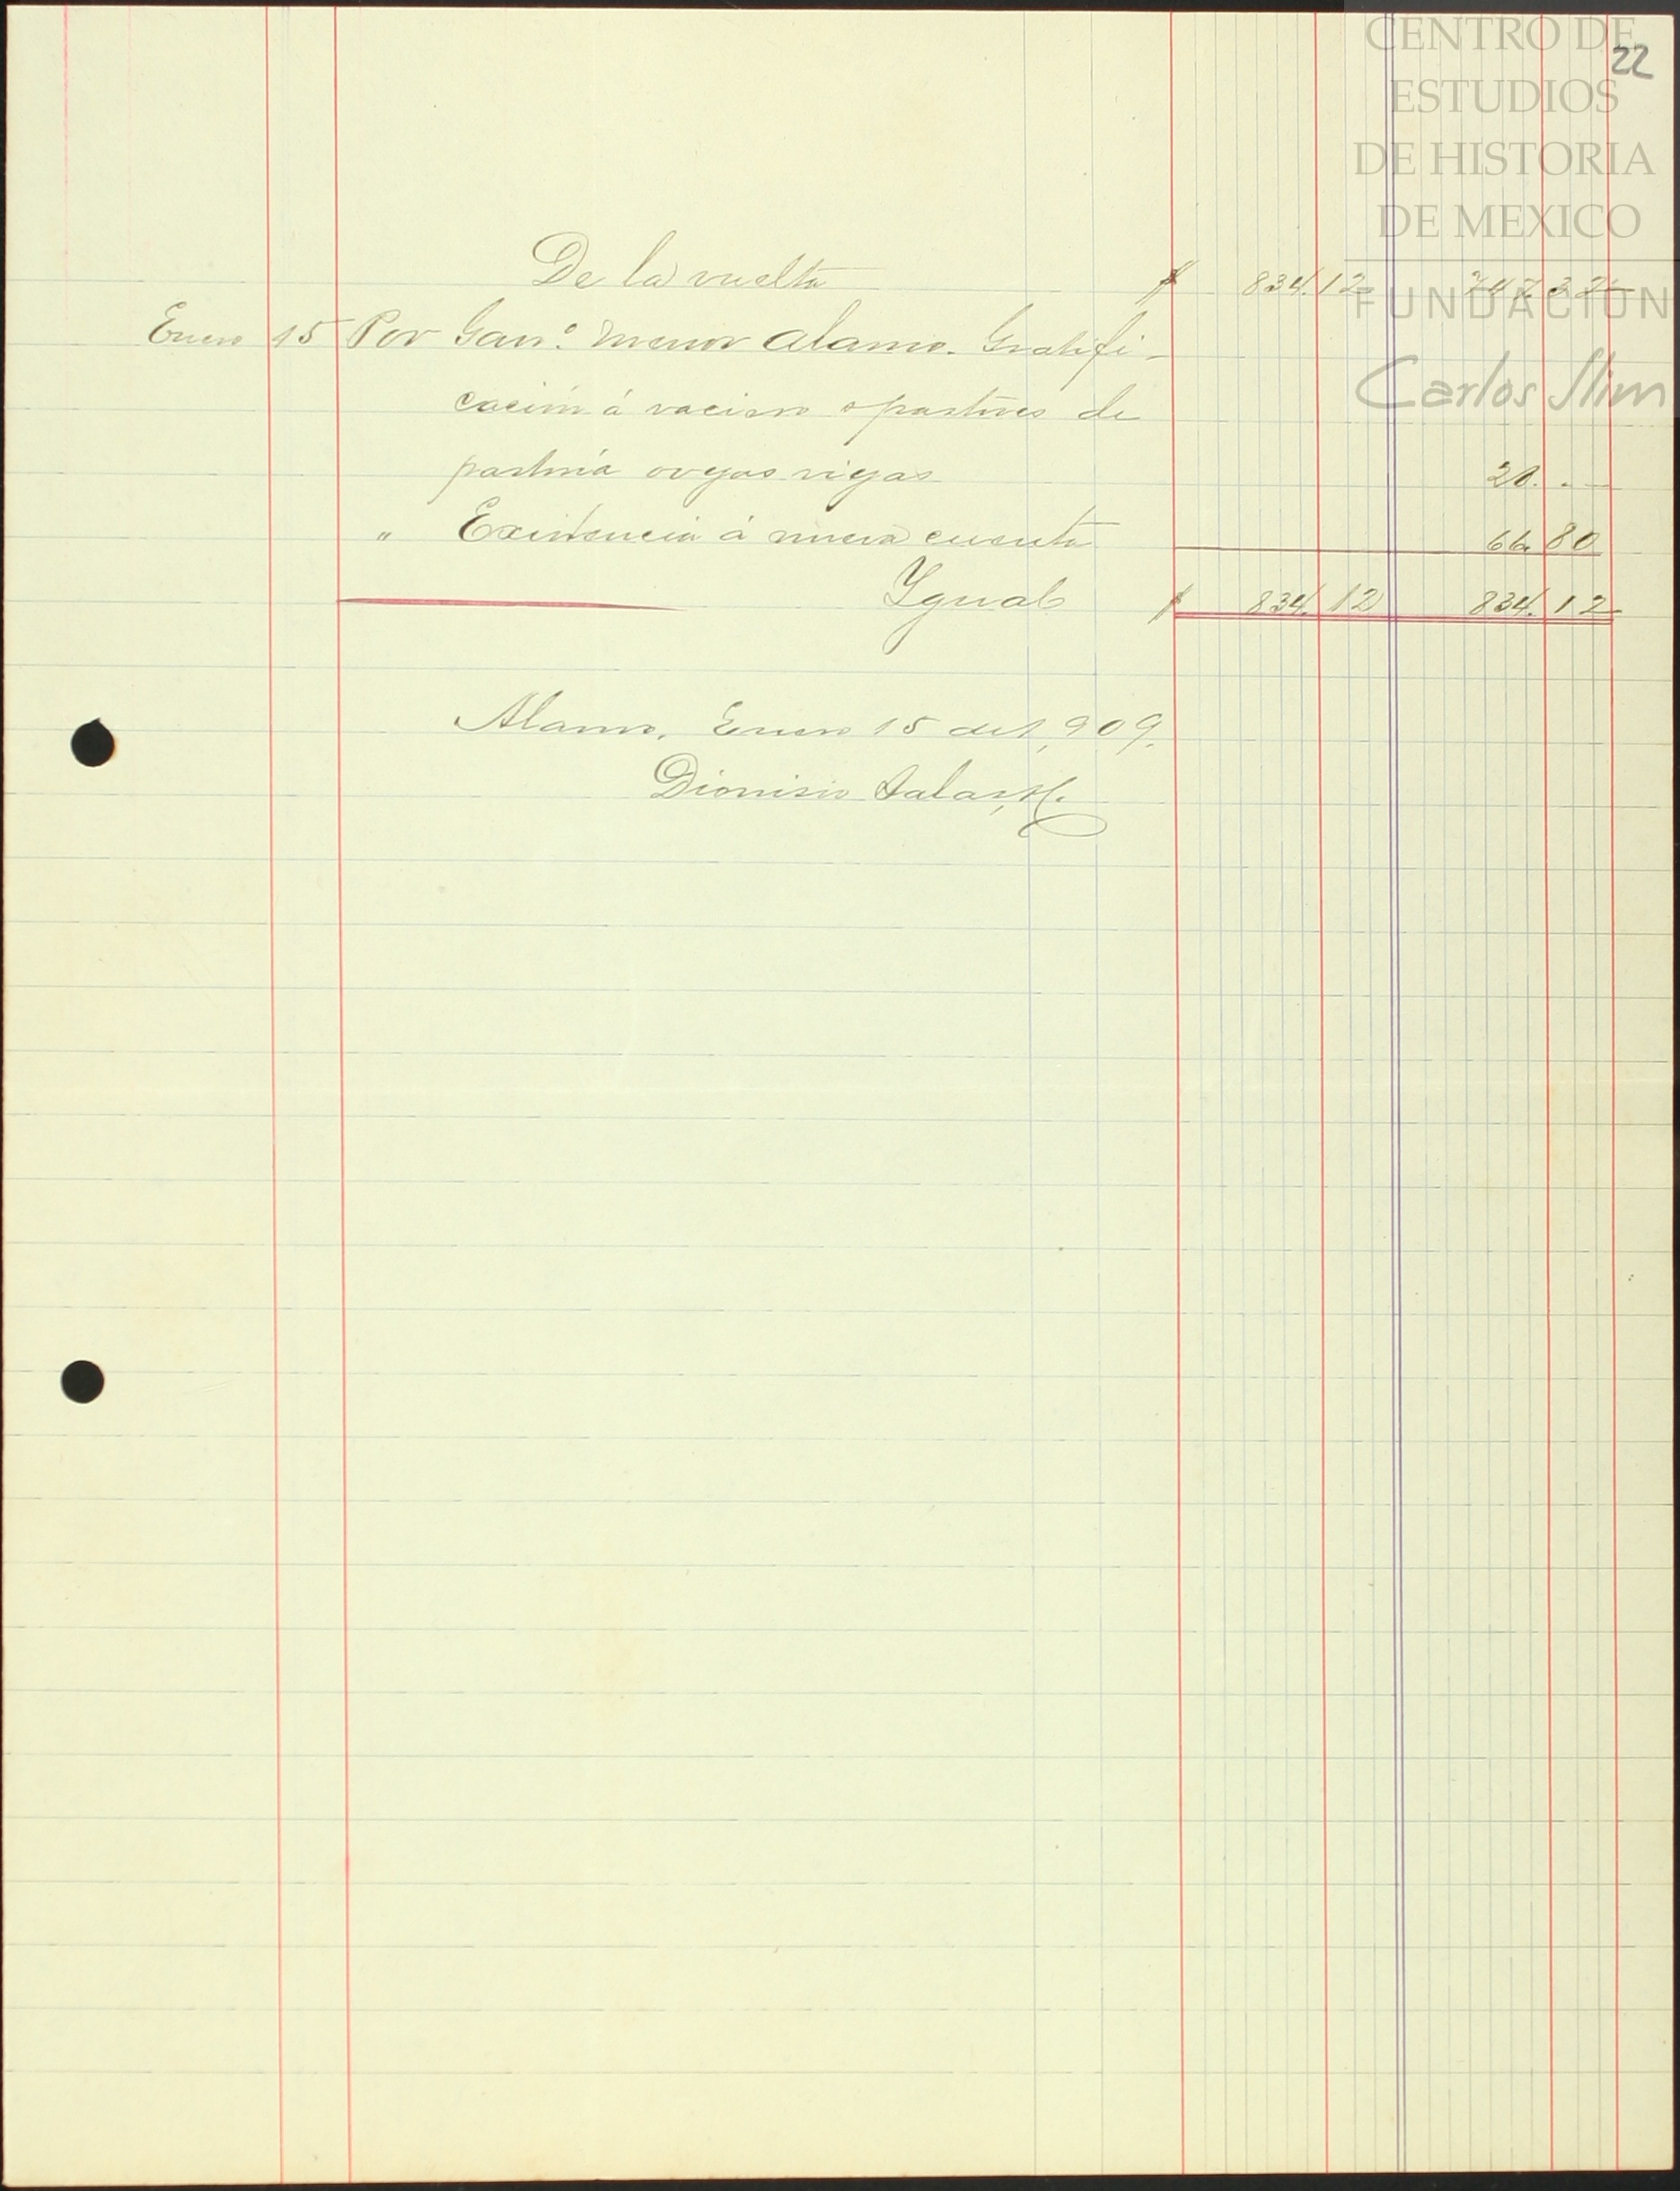 CENTRO DE
ESTUDIOS
DE HISTORIA
DE MEXICO
FUNDACION
Carlos Slim
22
De la vuelta $ 834.12 747.32
Enero 15 Por Gan.º menor Alamo. Gratifi-
cación á vaciero y pastores de
pastoría ovejas viejas 20. —
" Existencia á nueva cuenta 66.80
Ygual $ 834.12 834.12
Alamo, Enero 15 de 1,909.
Dionisio Salas, H.